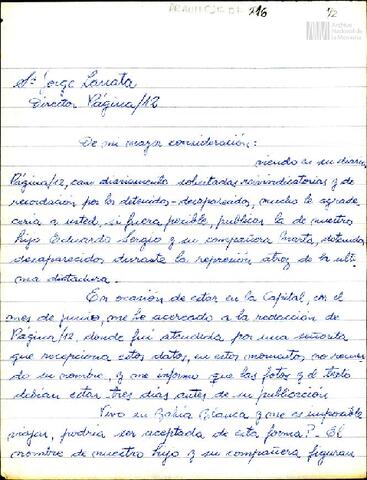 216
72
Archivo
Nacional de
la Memoria
Sr Jorge Lanata
Director Página/12
De mi mayor consideración:
viendo en su diario
Página/12, casi diariamente solicitadas reivindicatorias y de
recordación por los detenidos-desaparecidos, mucho le agrade
cería a usted, si fuera posible, publicar la de nuestro
hijo Eduardo Sergio y su compañera Marta, detenidos
desaparecidos durante la represión atroz de la últi
ma dictadura.
En ocasión de estar en la Capital, en el
mes de junio, me he acercado a la redacción de
Página/12, donde fui atendida por una señorita
que recepciona estos datos, en estos momentos no recuer
do su nombre, y me informó que las fotos y el texto
debían estar tres días antes de su publicación
Vivo en Bahía Blanca y me es imposible
viajar, podría ser aceptada de esta forma? El
nombre de nuestro hijo y su compañera figuran